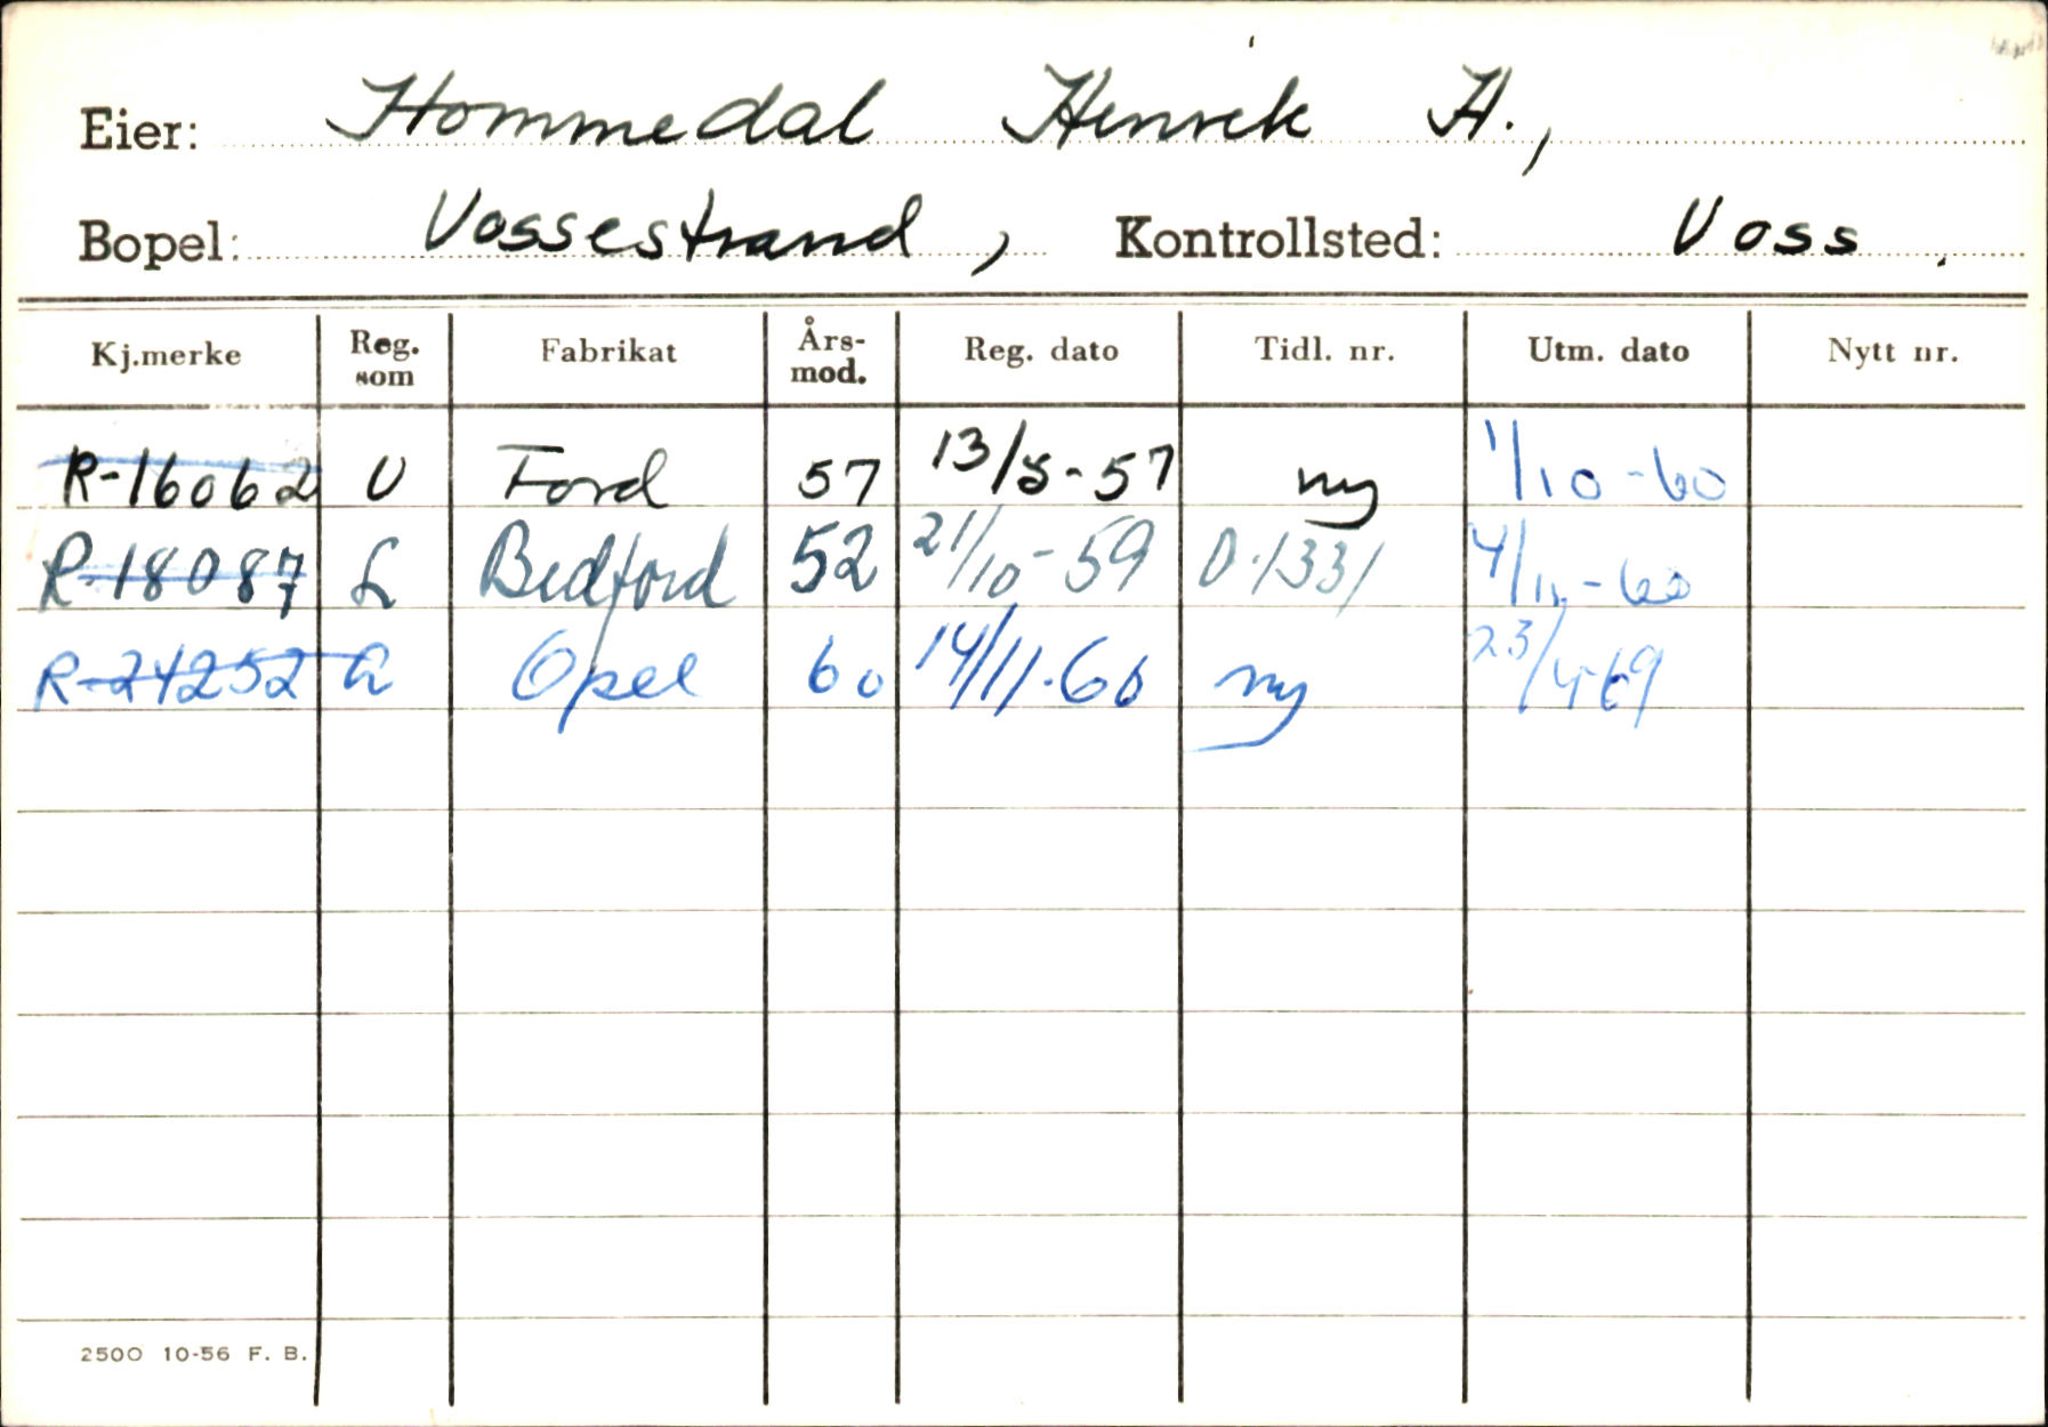 Eier: Hommedal Henrik H.,
Bopel: Vossestrand, Kontrollsted: Voss.
Kj.merke Reg. som Fabrikat Års-mod. Reg. dato Tidl. nr. Utm. dato Nytt nr.
R-16062 U Ford 57 13/8-57 ny 1/10-60
R-18087 L Bedford 52 21/10-59 D-1331 4/11-60
R-24252 a Opel 60 14/11-60 ny 23/4-69
2500 10-56 F. B.